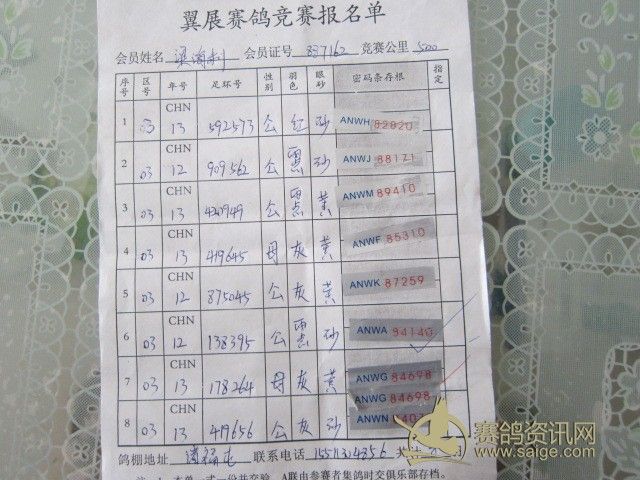 翼展赛鸽竞赛报名单
会员姓名 会员证号 837162 竞赛公里 500
序号 区号 年号 足环号 性别 羽色 眼砂 密码条存根 指定
1 03 CHN 13 592573 公 红 砂 ANWH 82820
2 03 CHN 12 909562 公 黑 砂 ANWJ 88171
3 03 CHN 13 420949 公 黑 黄 ANWM 89410
4 03 CHN 13 419645 母 灰 黄 ANWF 85310
5 03 CHN 12 875045 公 灰 黄 ANWK 87259
6 03 CHN 12 138395 公 黑 砂 ANWA 84140
7 03 CHN 13 178264 母 灰 黄 ANWG 84698
ANWG 84698
8 03 CHN 13 419656 公 灰 砂 ANWN
鸽棚地址 潘福屯 联系电话 15511314856
A联由参赛者集鸽时交俱乐部存档。
赛鸽资讯网
www.saige.com